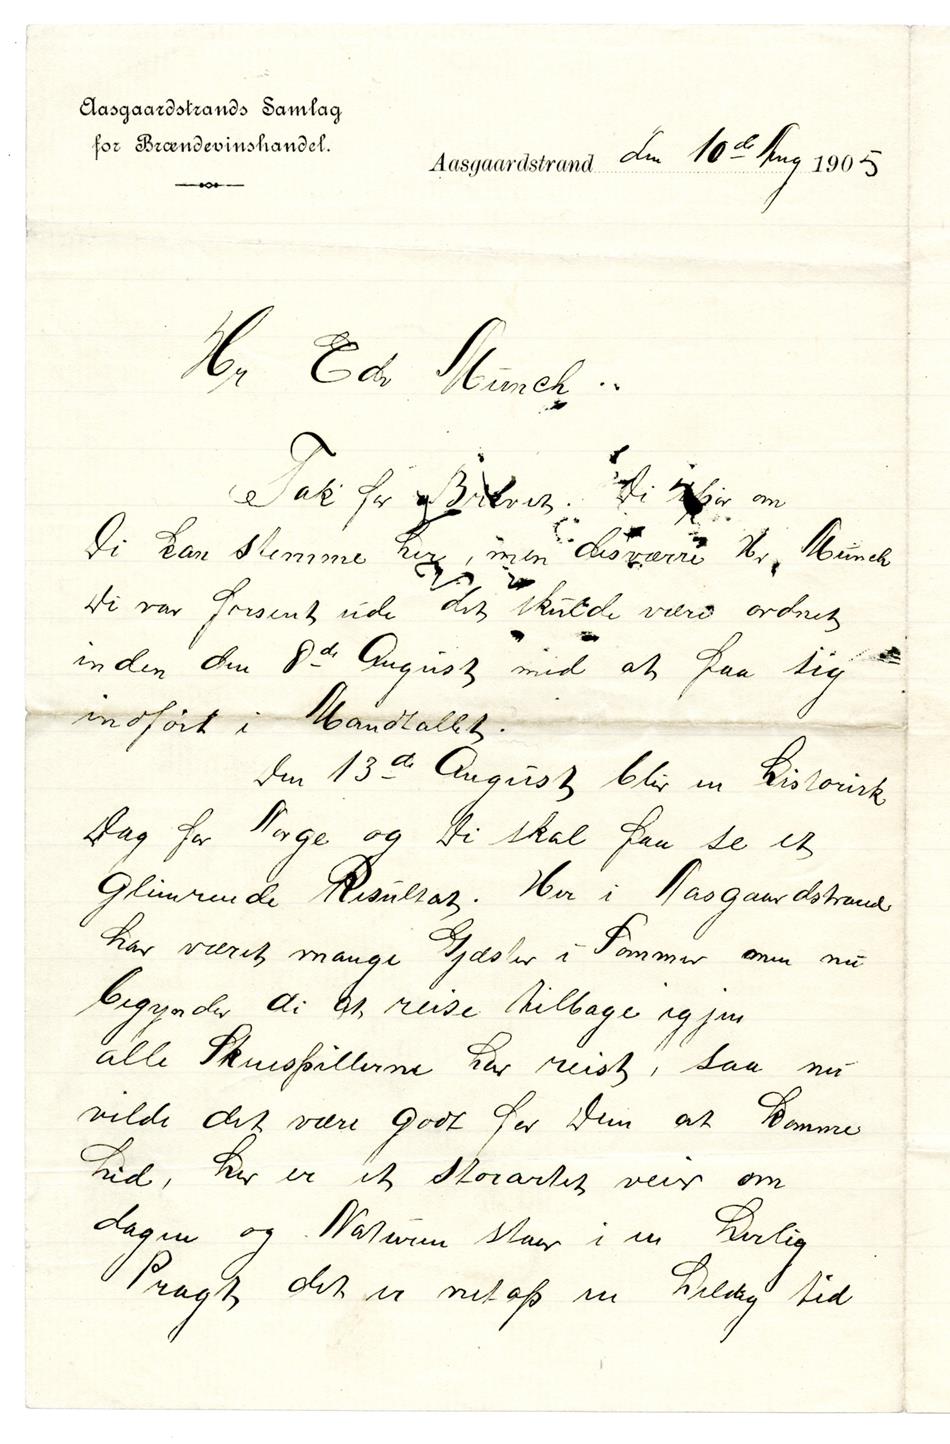 Aasgaardstrands Samlag
for Brændevinshandel.
Aasgaardstrand den 10de Aug 1905
Hr Edv Munch ..
Tak for Brevet. Di spør om
Di kan stemme her, men desværre Hr. Munch
Di var forsent ude det skulde være ordnet
inden den 8de August med at faa sig
indført i Mandtallet.
Den 13de August blir en historisk
Dag for Norge og Di skal faa se et
Glimrende Resultat. Her i Aasgaardstrand
har været mange Gjæster i Sommer men nu
begynder di at reise tilbage igjen
alle Skuespillerne har reist, saa nu
vilde det være godt for Dem at komme
hid, her er et storartet veir om
dagen og Naturen staar i en herlig
Pragt, det er netop en heldig tid